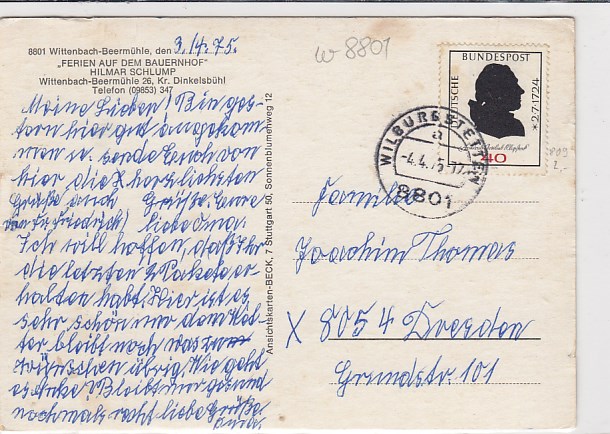 8801 Wittenbach-Beermühle, den 3./4.75.
„FERIEN AUF DEM BAUERNHOF"
HILMAR SCHLUMP
Wittenbach-Beermühle 26, Kr. Dinkelsbühl
Telefon (09853) 347
Meine Lieben! Bin ges-
tern hier gut angekom-
men u. sende Euch von
hier die herzlichsten
Grüße auch Grüße Eure
von Fr. Friedrich) liebe Oma.
Ich will hoffen, daß Ihr
die letzten 2 Pakete er-
halten habt. Hier ist es
sehr schön nur dem Wet-
ter bleibt noch was zu
wünschen übrig. Wie geht
es Anke? Bleibt nur gesund
nochmals recht liebe Grüße
Ansichtskarten-BECK, 7 Stuttgart 50, Sonnenblumenweg 12
w 8801
DEUTSCHE BUNDESPOST
* 2.7.1724
40
WILBURGSTETTEN
a
-4.4.75-17
8801
Familie
Joachim Thomas
X 8054 Dresden
Grundstr. 101